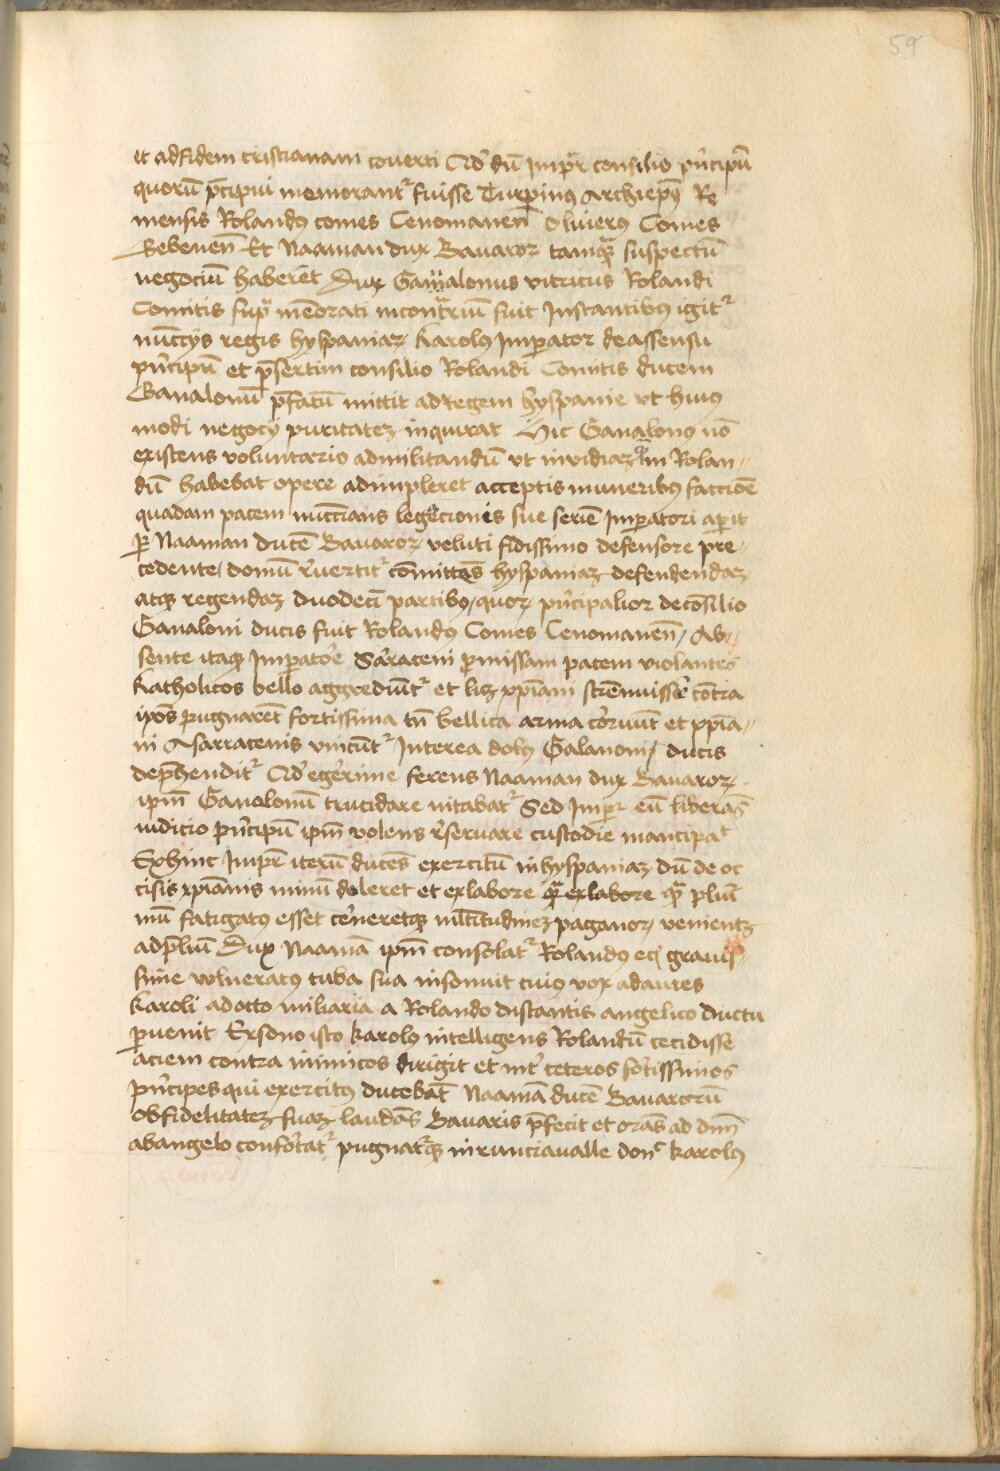 59
et adfidem cristianam couerti Qd' dū Imp̄r consilio p̄ncipū
quorū p̄cipui memorant᷑ fuisse Turpinus Archiep̄us Re
mensis Rolandus comes Cenomaneñ Oliuerus Comes
Gebeneñ Et Naaman dux Bauaroꝝ tamqȝ suspectū
negociū haberēt Dux Ganalonus vitricus Rolandi
Comitis sup̄ mēorati incontrariū fuit Instantibus igit᷑
nūccys regis hyspaniaꝝ Karolus Imperator deassensu
p̄ncipū et p̄sertim consilio Rolandi Comitis ducem
Ganalonū p̄fatū mittit adRegem hyspanie vt huius
modi negocy puritateȝ inquirat Hic Ganalonus nō
existens voluntario admilitandū vt inuidiaȝ quā in Rolan〃
dū habebat opere adimpleret acceptis muneribus facciōe
quadam pacem nuccians legacionis sue seriē Imperatori aperit
ꝑ Naaman ducē Bauaroꝝ veluti fidissimo defensore pre〃
cedente / domū reuertit᷑ cōmittēs hyspaniaȝ defendendaȝ
atqȝ regendaȝ duodecī partibus / quoꝝ p̄ncipalior decōsilio
Ganaloni ducis fuit Rolandus Comes Cenomaneñ / Ab〃
sente itaqȝ Imperatore Sarraceni ꝑmissam pacem violantes
Katholicos bello aggrediūt᷑ et licȝ xp̄iani strēnuissē cōtra
ip̄os pugnarēt fortissima tn̄ bellica arma coruūt et xp̄ia〃
ni Asarracenis vincūt᷑ Interea dolus Galanoni / ducis
dep̄hendit᷑ Qd' egerrime ferens Naaman dux Bauaroꝝ
ip̄m Ganalonū trucidare nitabat᷑ Sed Imp̄r eū liberās
iudicio p̄ncipū ip̄m volens reseruare custodie mancipat
Exhinc Imp̄r iterū ducēs exercitū inhyspaniaȝ dū de oc
cisis xp̄ianis nimiū doleret et exlabore quā exlabore quā pluri
mū fatigatus esset cerneretqȝ multitudineȝ paganoꝝ venientē
adp̄liū Dux Naamā ip̄m consolat᷑ Rolandus eciā grauis〃
sime vulneratus tuba sua insonuit cuius vox adaures
Karoli adocto miliaria a Rolando distantis angelico ductu
ꝑuenit Exsono isto Karolus intelligens Rolandū cecidisse
aciem contra inimicos dirigit et int̄ ceteros fortissimos
p̄ncipes qui exercitus ducebāt Naamā ducē Bauarorū
obfidelitateȝ suaȝ laudās Bauaris p̄fecit et orās ad dn̄m
abangelo confortat᷑ pugnaturqȝ inrunciaualle donec Karolus